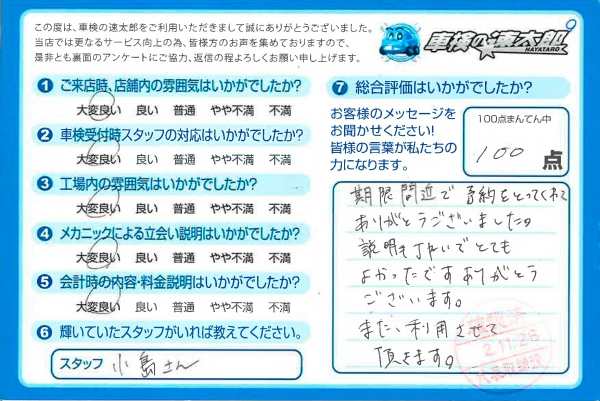 この度は、車検の速太郎をご利用いただきまして誠にありがとうございました。
当店では更なるサービス向上の為、皆様方のお声を集めておりますので、
是非とも裏面のアンケートにご協力、返信の程よろしくお願い申し上げます。
車検の速太郎
HAYATARO
1 ご来店時、店舗内の雰囲気はいかがでしたか?
大変良い 良い 普通 やや不満 不満
2 車検受付時スタッフの対応はいかがでしたか?
大変良い 良い 普通 やや不満 不満
3 工場内の雰囲気はいかがでしたか?
大変良い 良い 普通 やや不満 不満
4 メカニックによる立会い説明はいかがでしたか?
大変良い 良い 普通 やや不満 不満
5 会計時の内容・料金説明はいかがでしたか?
大変良い 良い 普通 やや不満 不満
6 輝いていたスタッフがいれば教えてください。
スタッフ 小島さん
7 総合評価はいかがでしたか?
お客様のメッセージを
お聞かせください!
皆様の言葉が私たちの
力になります。
100点まんてん中
100 点
期限間近で予約をとってくれて
ありがとうございました。
説明も丁ねいでとても
よかったですありがとう
ございます。
また、利用させて
頂きます。
2.11.26